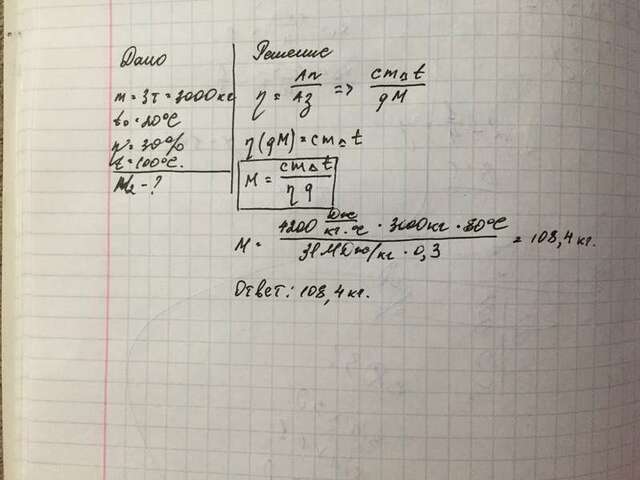 Дано
m = 3т = 3000кг
t₀ = 20°C
η = 30%
t = 100°C.
M₂ - ?
Решение
η = Aп/Aз => cmΔt/qM
η(qM) = cmΔt
M = cmΔt/η q
M = 4200 Дж/кг·°C · 3000кг · 80°C / 31МДж/кг · 0,3 = 108,4 кг.
Ответ: 108,4 кг.